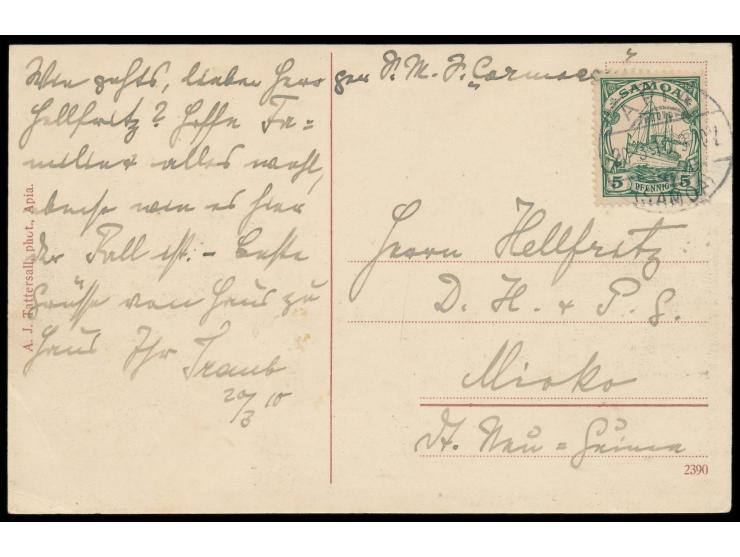 Wie gehts, lieber Herr
Hellfritz? Hoffe Fa=
milie alles wohl,
ebenso wie es hier
der Fall ist. – Beste
Grüsse von Haus zu
Haus Ihr Traub
20/3 10
A. J. Tattersall, phot., Apia.
per S. M. S. "Cormoran"
SAMOA
5 PFENNIG 5
APIA
20 3 10
(SAMOA)
Herrn Hellfritz
D. H. & P. G.
Mioko
Dt. Neu=Guinea
2390